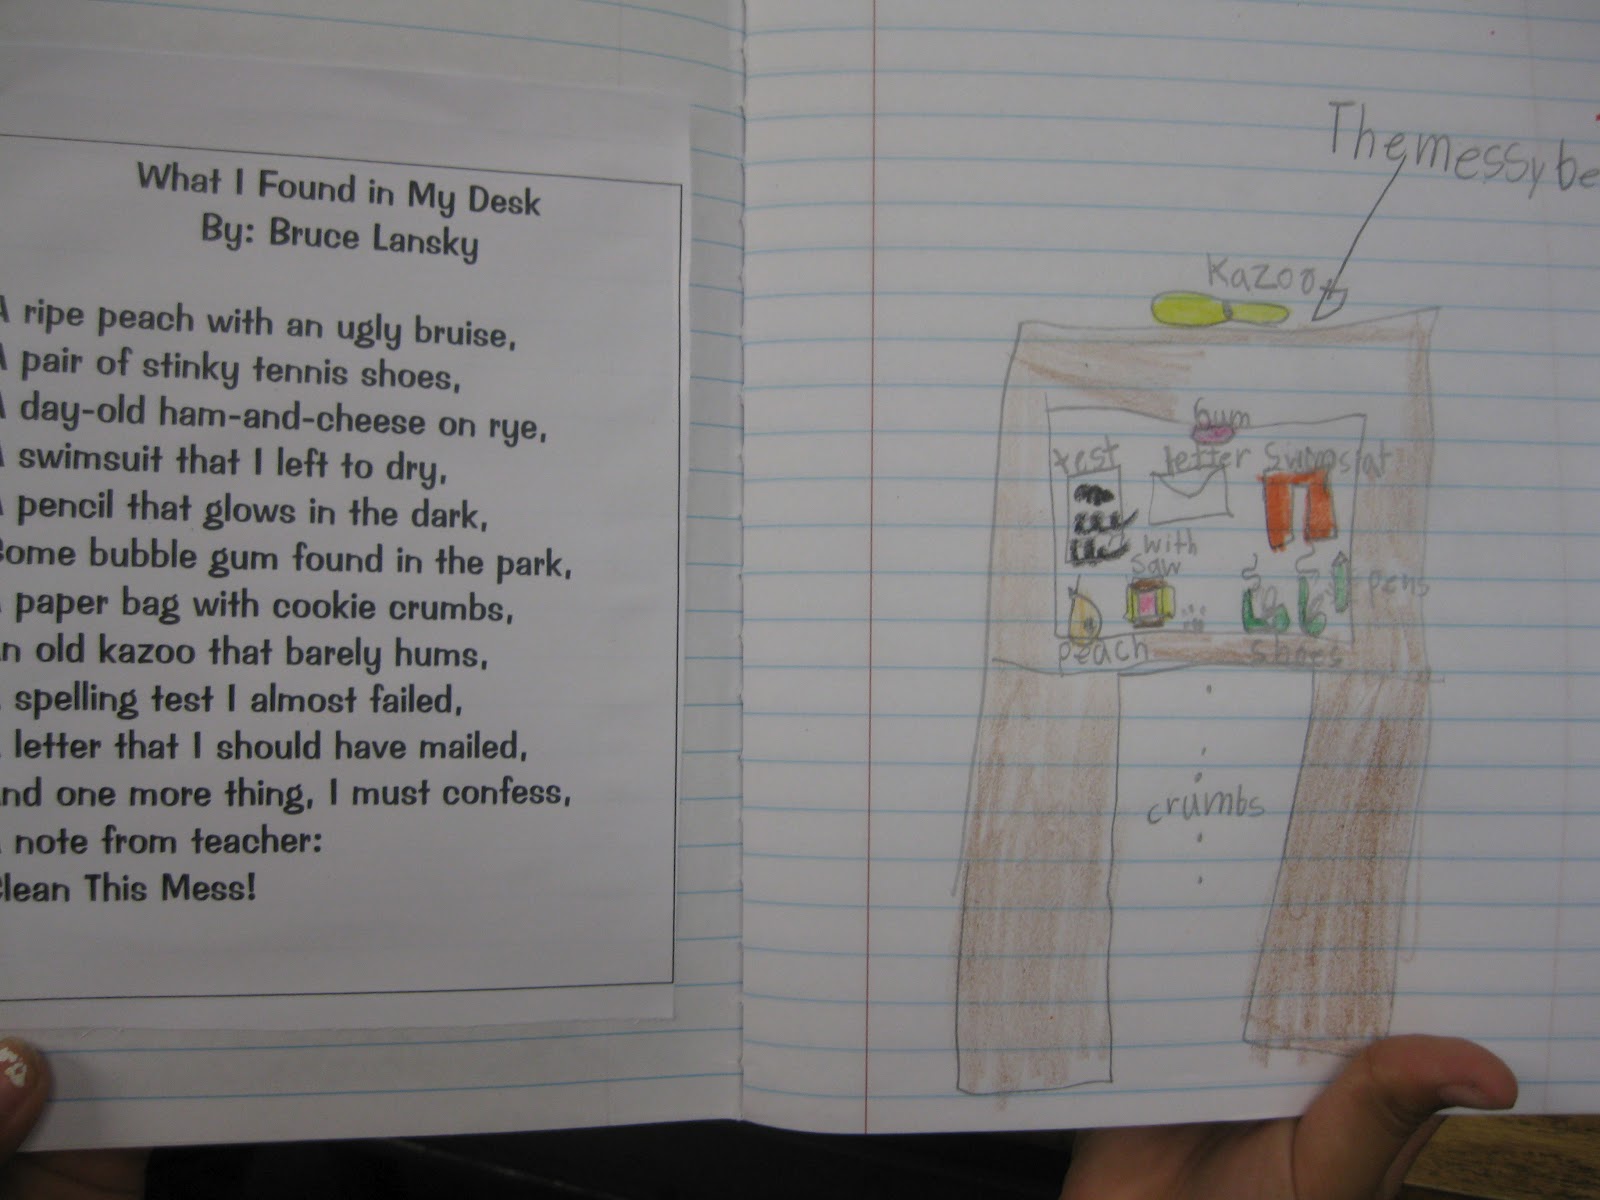 What I Found in My Desk
By: Bruce Lansky
A ripe peach with an ugly bruise,
A pair of stinky tennis shoes,
A day-old ham-and-cheese on rye,
A swimsuit that I left to dry,
A pencil that glows in the dark,
ome bubble gum found in the park,
paper bag with cookie crumbs,
n old kazoo that barely hums,
spelling test I almost failed,
letter that I should have mailed,
nd one more thing, I must confess,
note from teacher:
lean This Mess!
The messy be
Kazoo
Gum
test letter
with
saw
pens
peach shoes
crumbs